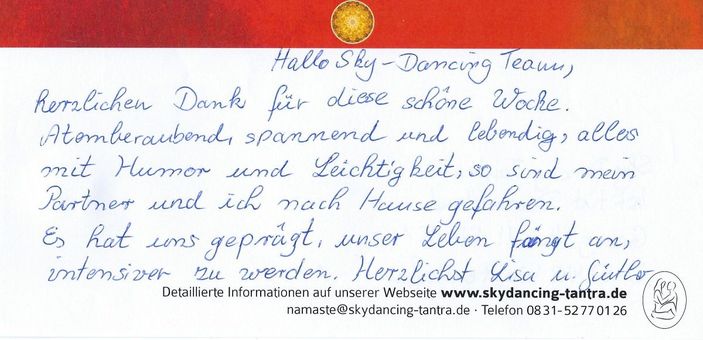 Hallo Sky-Dancing Team,
herzlichen Dank für diese schöne Woche.
Atemberaubend, spannend und lebendig, alles
mit Humor und Leichtigkeit, so sind mein
Partner und ich nach Hause gefahren.
Es hat uns geprägt, unser Leben fängt an,
intensiver zu werden. Herzlichst Lisa u.
Detaillierte Informationen auf unserer Webseite www.skydancing-tantra.de
namaste@skydancing-tantra.de · Telefon 0831-52770126